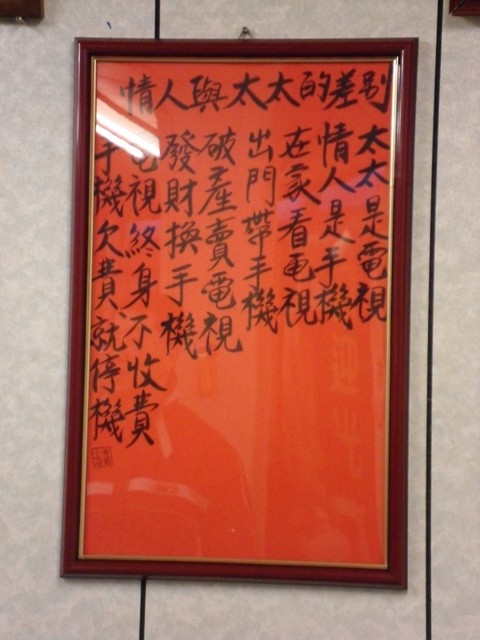 情人與太太的差别
太太是電視
情人是手機
在家看电視
出門帶手機
破產賣電視
發財換手機
電視終身不收費
手機欠費就停機